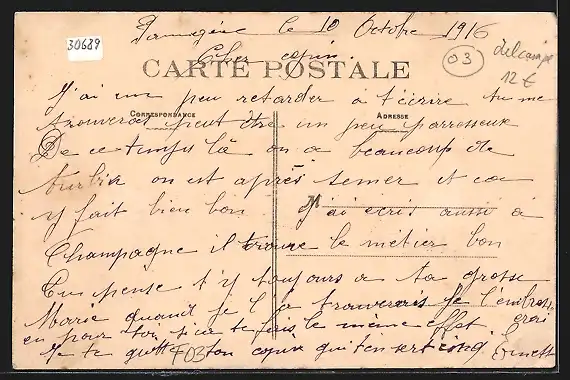 30689
le 10 Octobre 1916
Cher copin
03
12 €
CARTE POSTALE
J'ai un peu retarder a t'écrire tu me
CORRESPONDANCE
ADRESSE
trouveras peut être un peu parrosseux
De ce temps là on a beaucoup de
on est après semer et ca
y fait bien bon
M
j'ai ecris aussi à
Champagne il trouve le métier bon
pense t'y toujours a ta grosse
Marie quand je la trouverais je l'embrass
pour toi sa te feras le même effet.
Je te quitt ton copin qui t'en sert cinq Ernest
F03